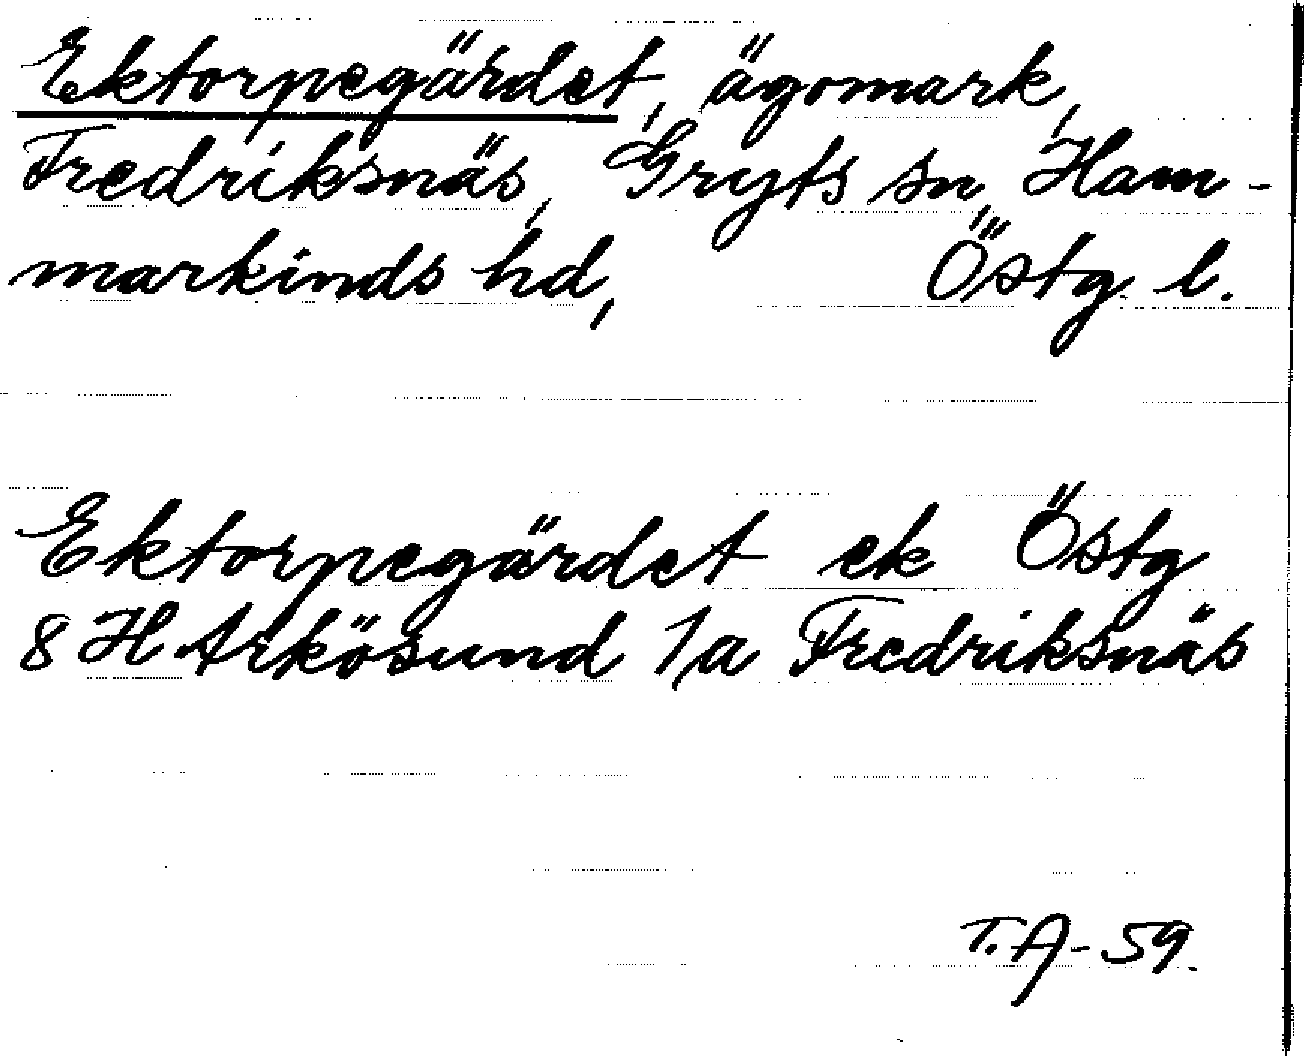 Ektorpegärdet, ägomark,
Fredriksnäs, Gryts sn, Ham-
markinds hd, Östg l.
Ektorpegärdet ek Östg
8 H Arkösund 1a Fredriksnäs
T.A-59.